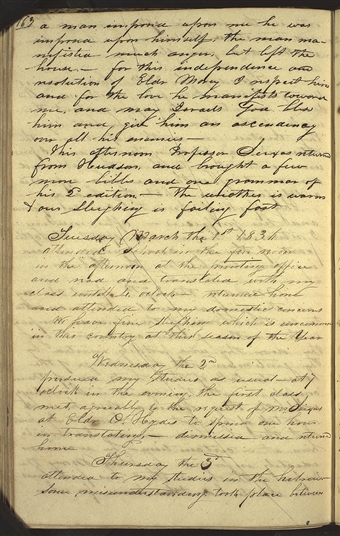 163
a man imposed upon me he was
imposed upon himself, the man ma
nifested much anger, but left the
house — for this independence and
resolution of Eldr Morey I respect him
and for the love he manifests toward
me, and may Israels God bless
him and give him an ascendency
over all his enemies —
This afternoon Professor Seixas returned
from Hudson, and bought a few
more bibles and one grammar of
his 2d edition — the weather is warm
& our sleighing is failing fast
Tuesday March the 1st 1836
attended School in the fore noon
in the afternoon at the printing office
and read and translated with my
class until 4, oclock — returned home
and attended to my domestic concerns
We have fine sleighing which is uncommon
in this country at this season of the year
Wednesday the 2nd
persued my studies as usual — at 7
oclock in the evening the first class
met, agreeably to the request of Mr Seixas
at Eldr O. Hydes to spend one hour
in translating, — dismissed and returned
home
Thursday the 3d
attended to my studies in the hebrew
some misunderstanding, took place between